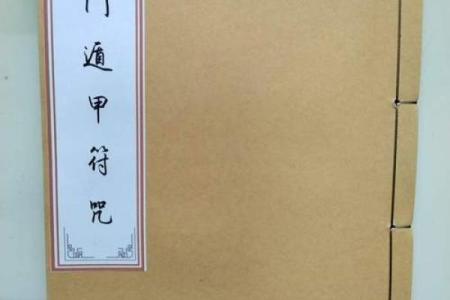 门遁甲符咒